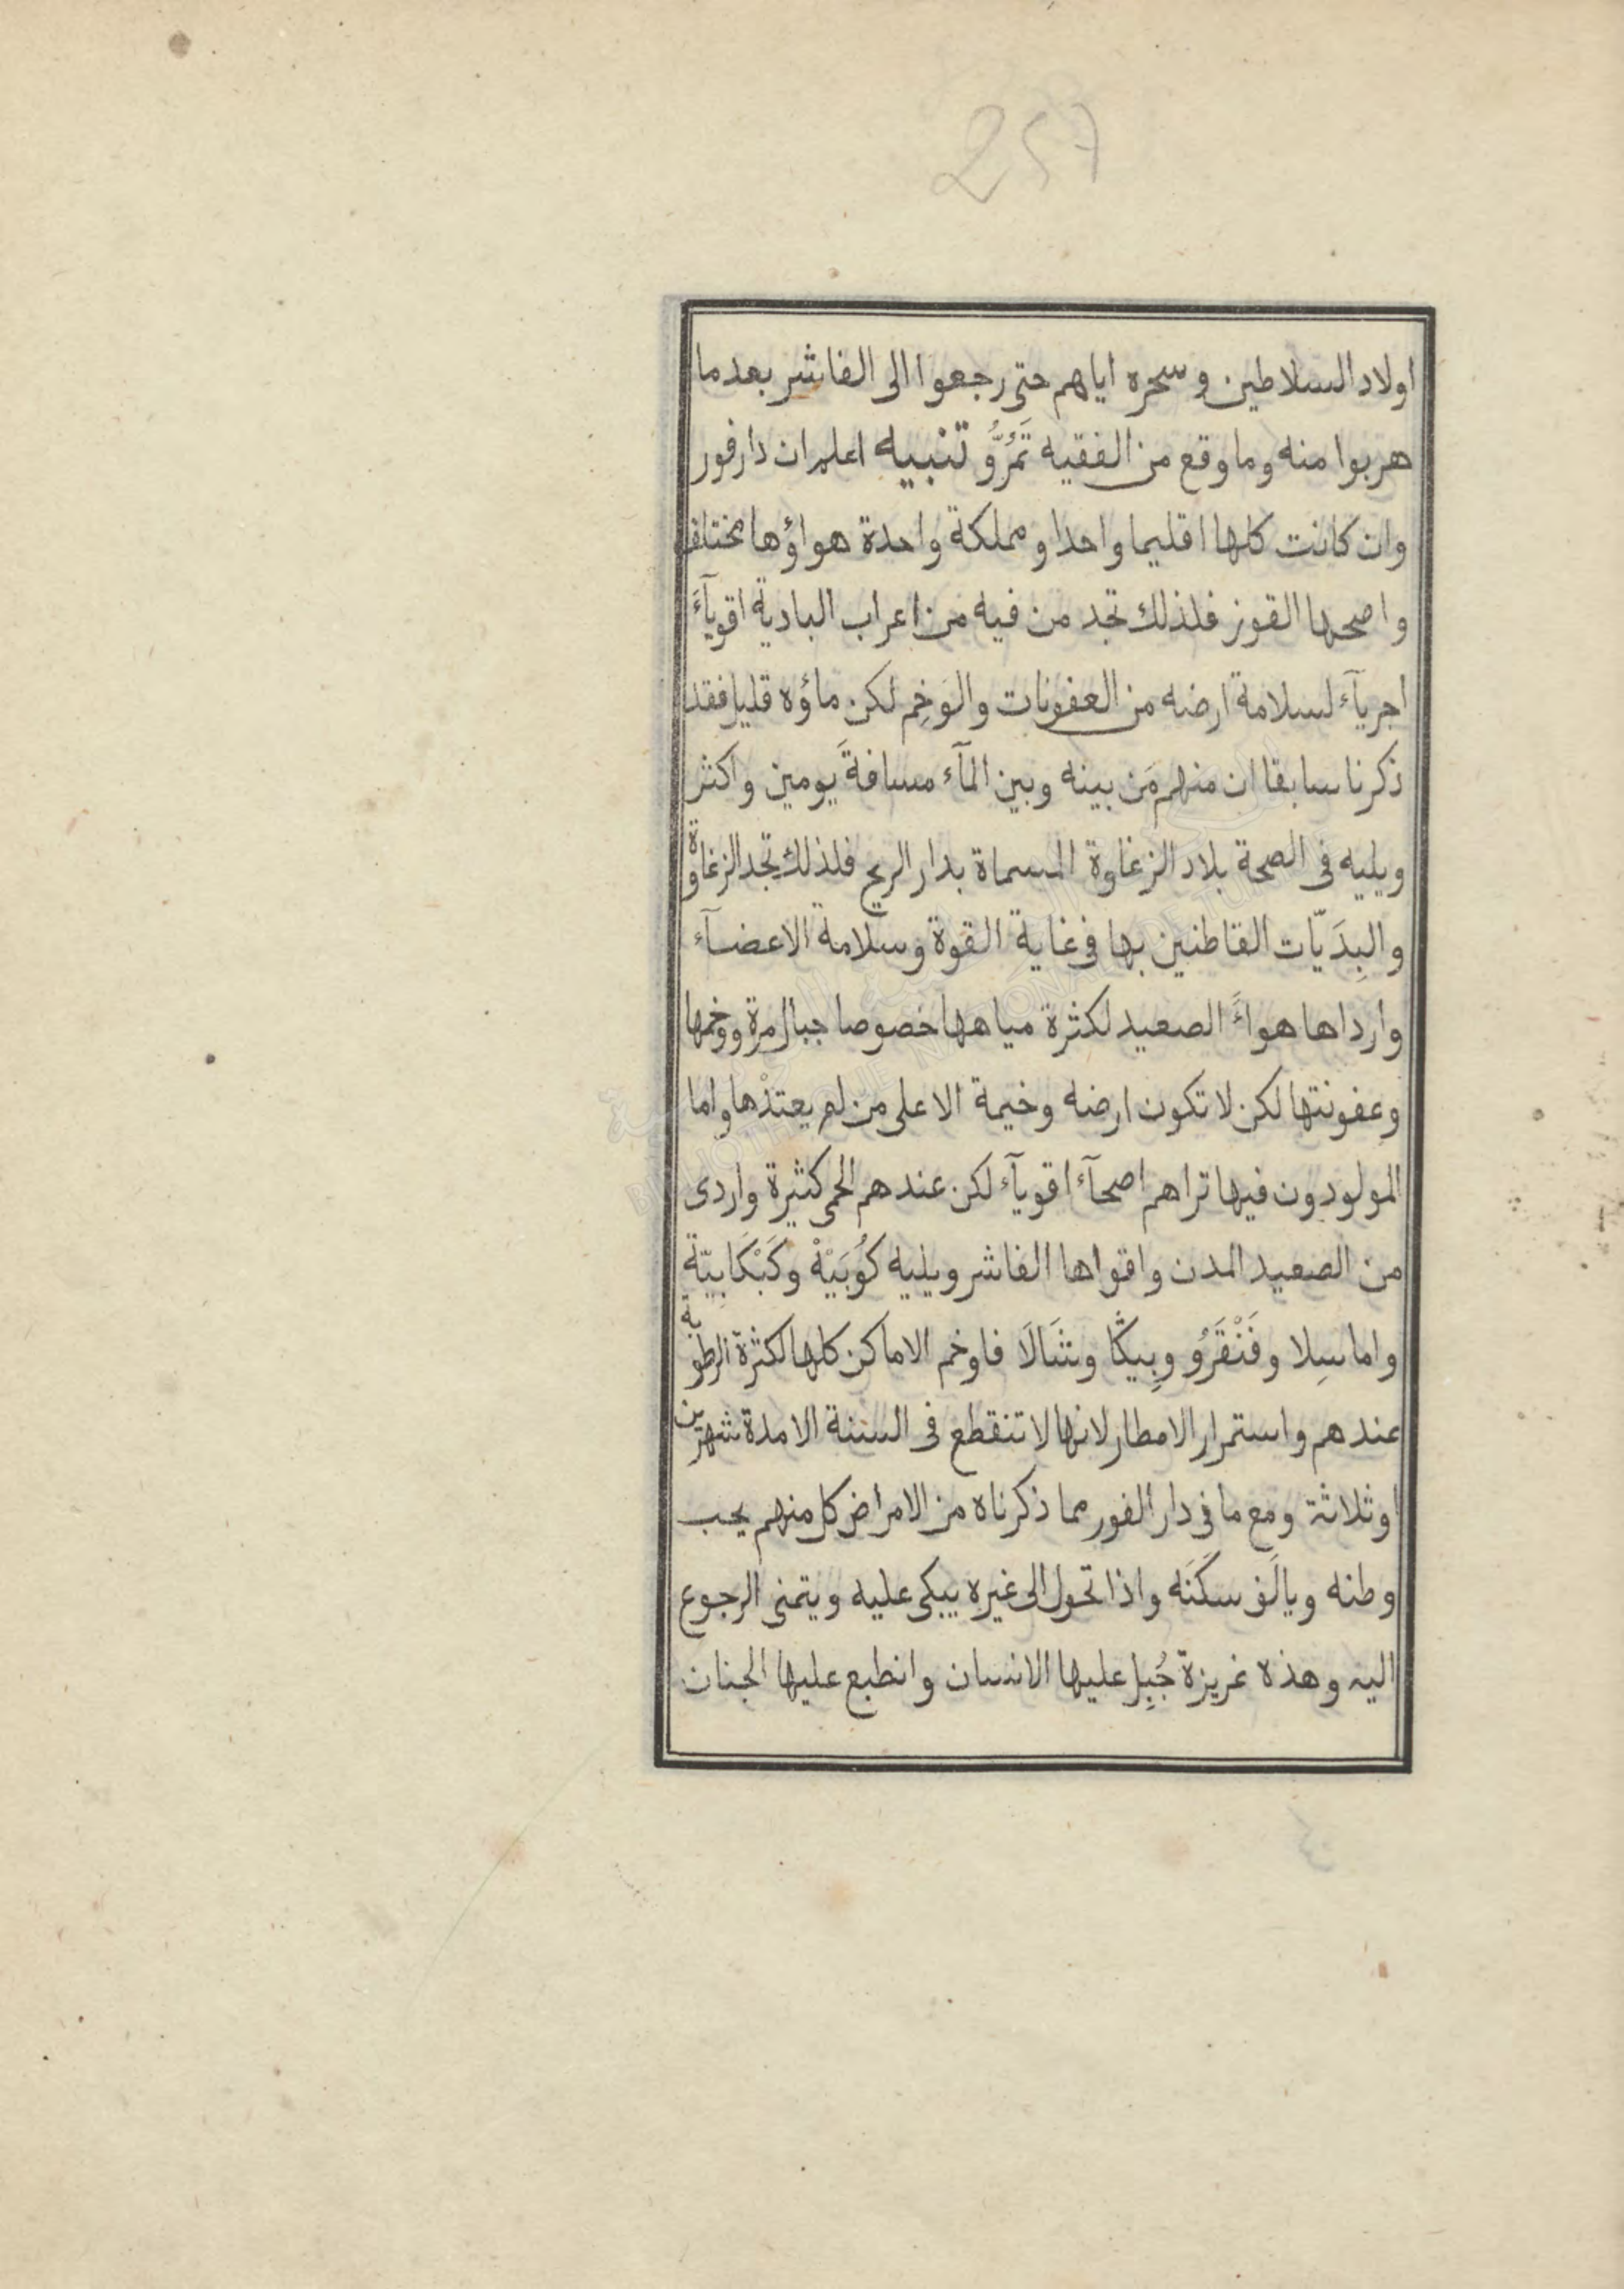 257
اولاد السلاطين وسحره اياهم حتى رجعوا الى الفاشر بعد ما
هربوا منه وما وقع من الفقيه تَمُرُّو تنبيه اعلم ان دارفور
وان كانت كلها اقليما واحدا ومملكة واحدة هواؤها مختلف
واصحها القوز فلذلك تجد من فيه من اعراب البادية اقويآءَ
اجريآء لسلامة ارضه من العفونات والوَخِم لكن ماؤه قليل فقد
ذكرنا سابقا ان منهم مَن بينه وبين المآء مسافةَ يومين واكثر
ويليه فى الصحة بلاد الزغاوة المسماة بدار الريح فلذلك تجد الزغاوة
والبِدَيّات القاطنين بها فى غاية القوة وسلامة الاعضآء
وارداها هواءً الصعيد لكثرة مياهها خصوصا جبال مرة ووخمها
وعفونتها لكن لا تكون ارضه وخيمة الا على من لم يعتدْها واما
المولودون فيها تراهم اصحآء اقويآء لكن عندهم الحمى كثيرة واردى
من الصعيد المدن واقواها الفاشر ويليه كُوبَيْهْ وكَبْكَابِيّة
واما سِلا وفَنْقَرُو وبِيكًا وشَالَا فاوخم الاماكن كلها لكثرة الرطوبة
عندهم واستمرار الامطار لانها لا تنقطع فى السنة الا مدة شهرين
او ثلاثة ومع ما فى دار الفور مما ذكرناه من الامراض كل منهم يحب
وطنه ويالَف سكَنَه واذا تحول الى غيره يبكى عليه ويتمنى الرجوع
اليه وهذه غريزة جُبِل عليها الانسان وانطبع عليها الجنان